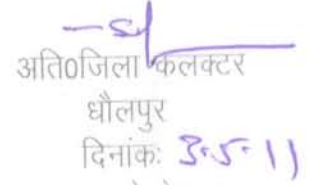 अति0जिला कलक्टर
धौलपुर
दिनांकः 3-5-11